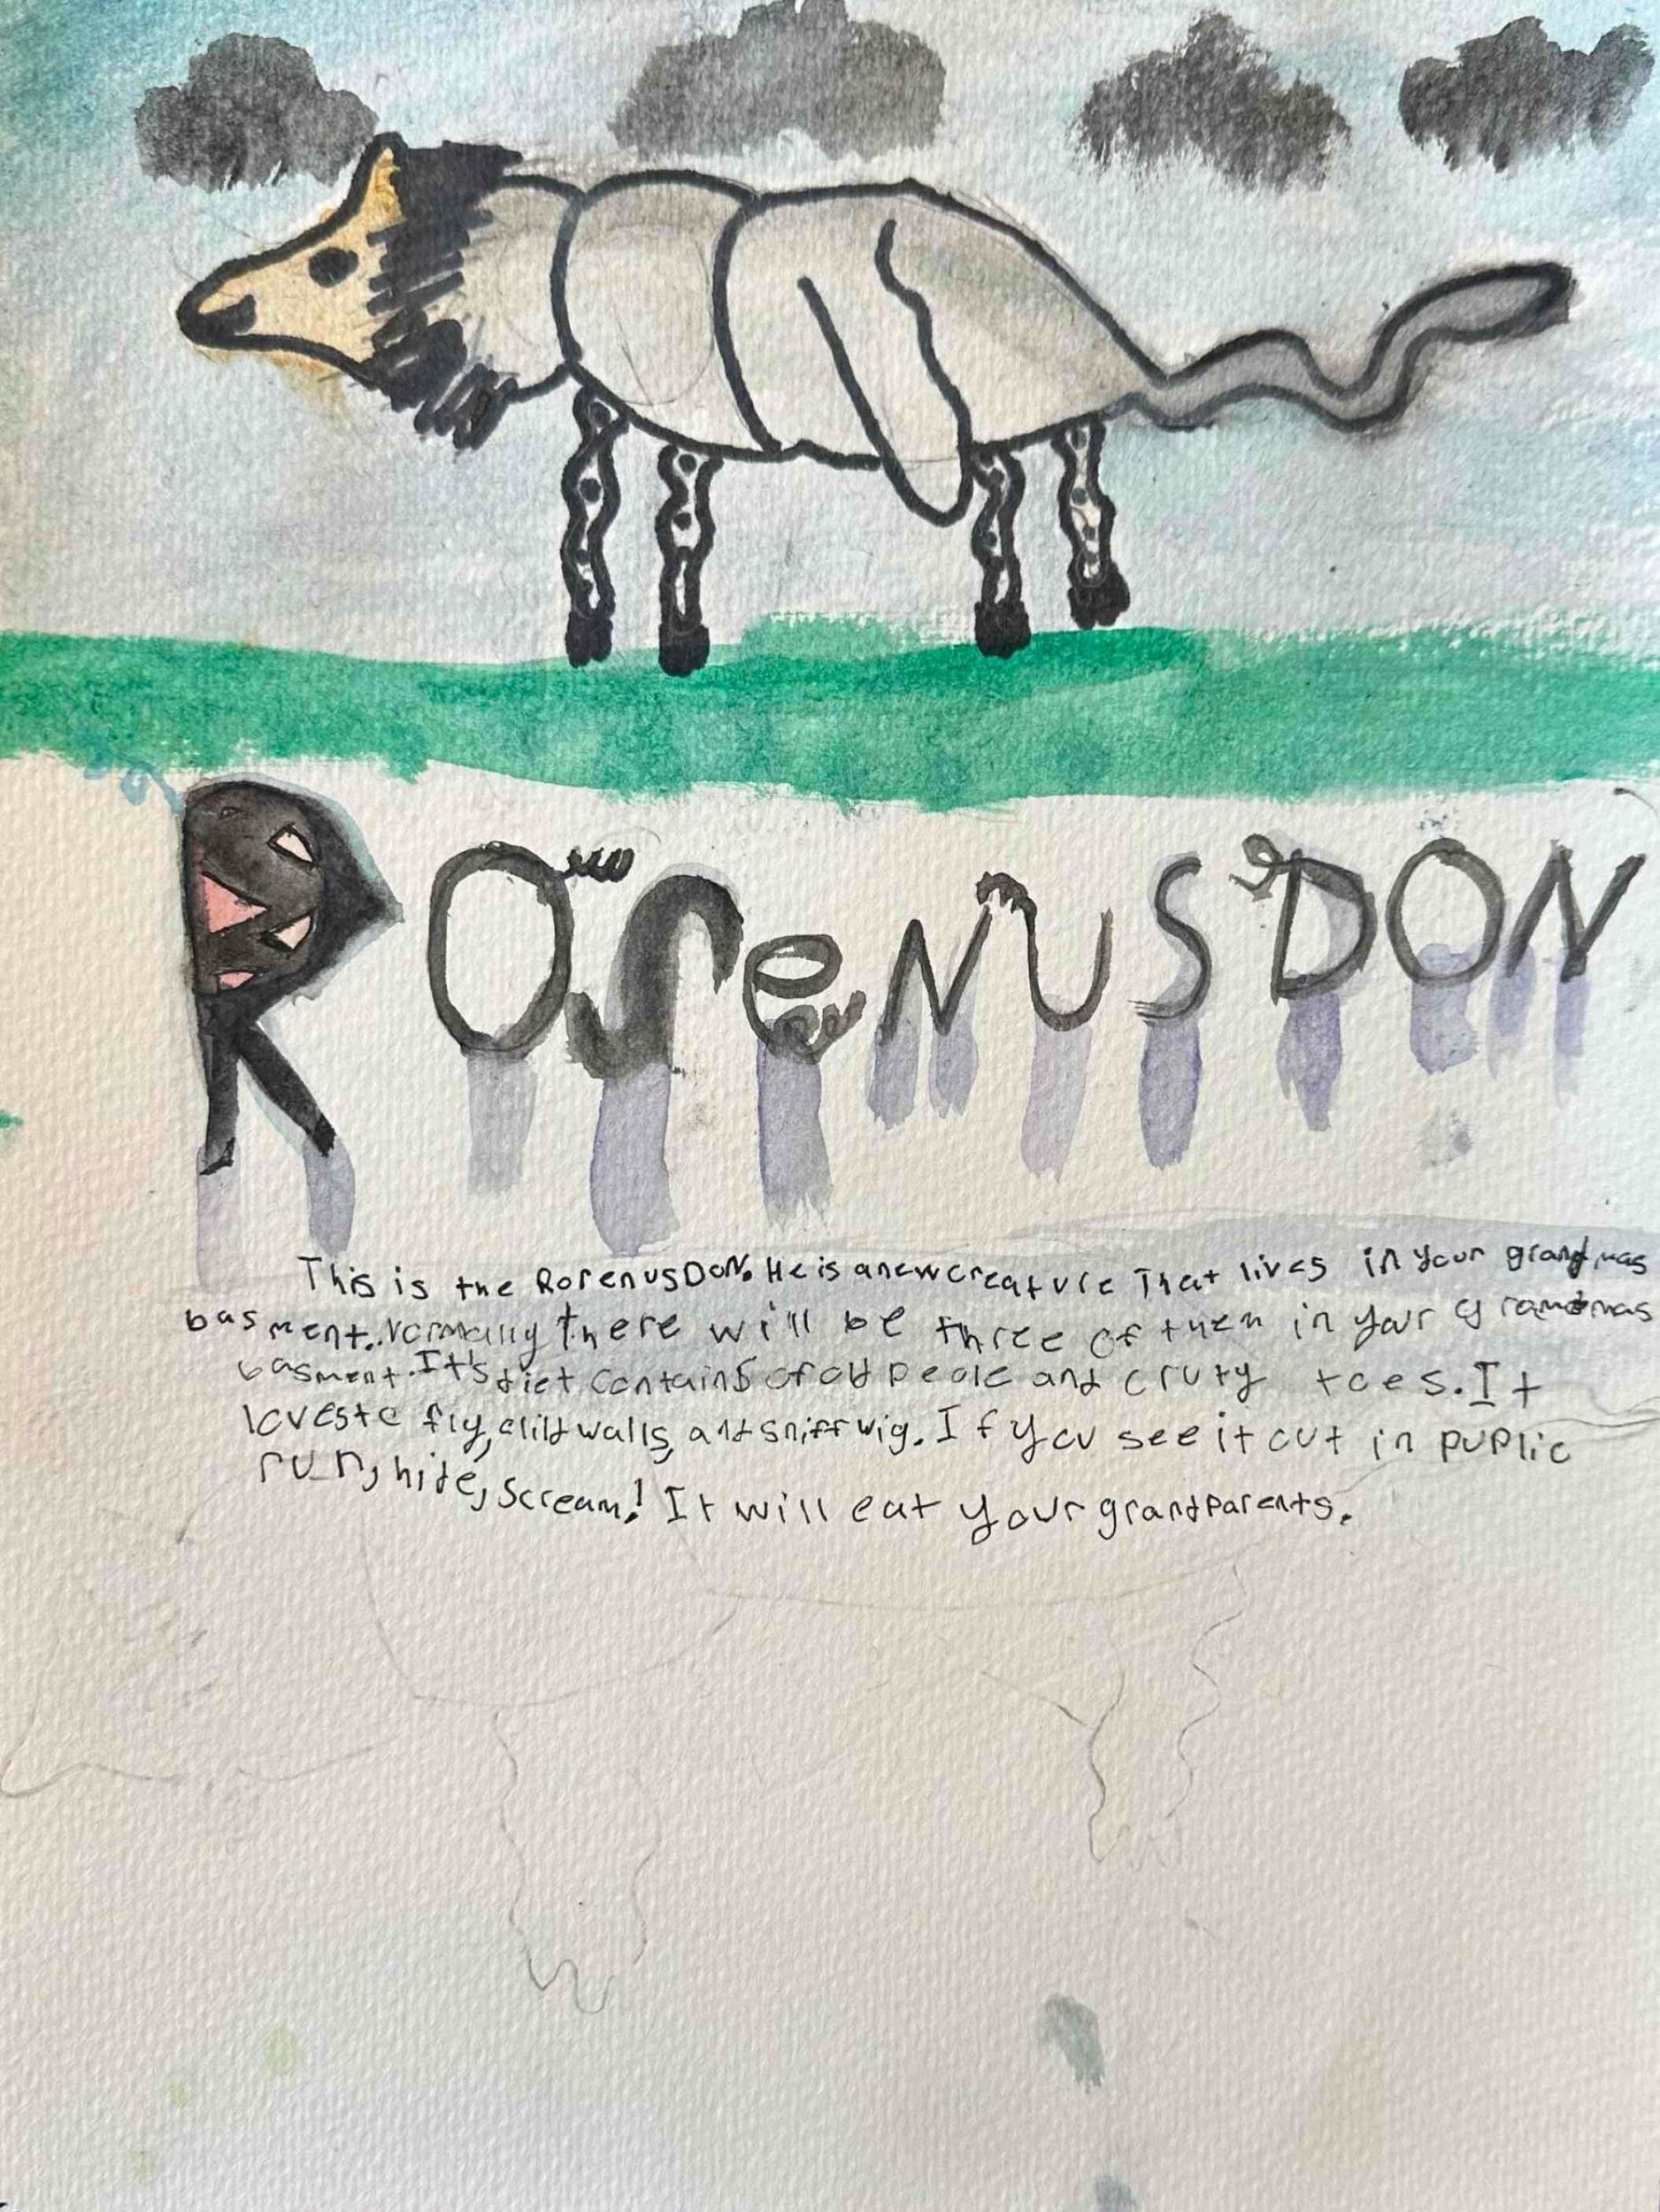 RorenusDON
This is the RorenusDoN. He is a new creature That lives in your grandmas
basment. Normally there will be three of them in your grandmas
basment. It's diet contains of old peole and cruty toes. It
loves to fly, climb walls, and sniff wig. If you see it out in puplic
run, hide, scream! It will eat your grandparents.